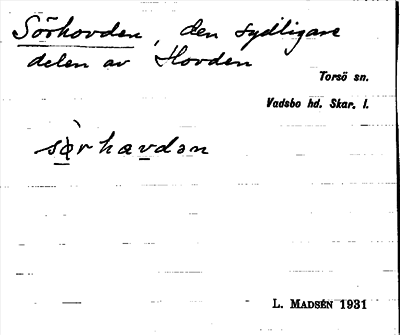 Sörhovden, den sydligare
delen av Hovden
Torsö sn.
Vadsbo hd. Skar. l.
sɑ̀rhavdən
L. MADSÉN 1931